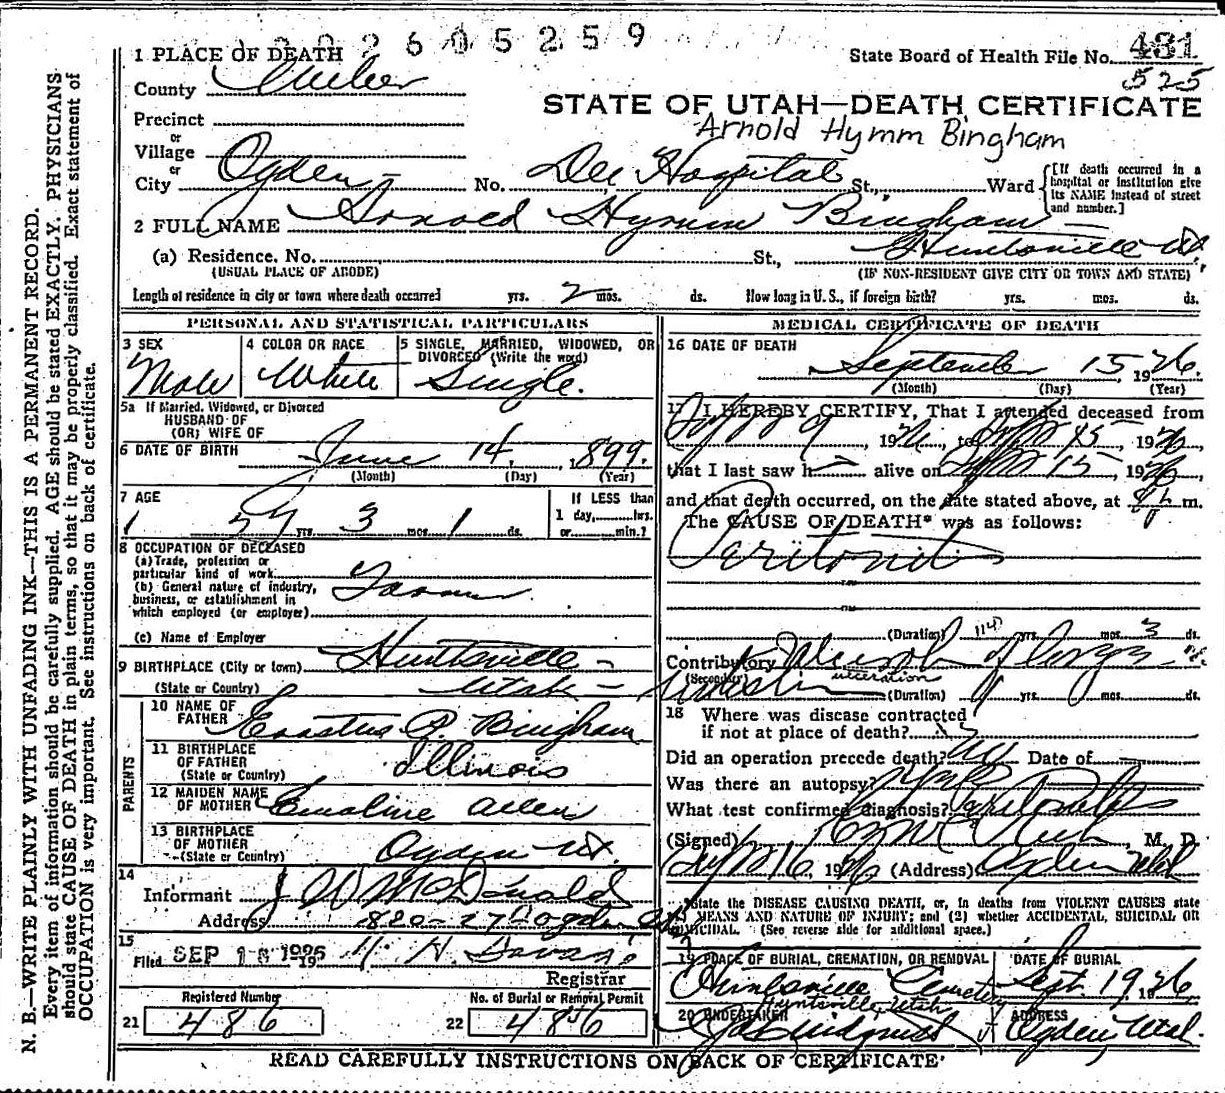 2605259
1 PLACE OF DEATH
State Board of Health File No. 481
525
County Weber
STATE OF UTAH—DEATH CERTIFICATE
Arnold Hymm Bingham
Precinct
or
Village
or
City Ogden No. Dee Hospital St., Ward [If death occurred in a hospital or institution give its NAME instead of street and number.]
2 FULL NAME Arnold Hymm Bingham
(a) Residence. No. St., Huntsville Ut.
(USUAL PLACE OF ABODE) (IF NON-RESIDENT GIVE CITY OR TOWN AND STATE)
Length of residence in city or town where death occurred yrs. 2 mos. ds. How long in U. S., if foreign birth? yrs. mos. ds.
PERSONAL AND STATISTICAL PARTICULARS
3 SEX
Male
4 COLOR OR RACE
White
5 SINGLE, MARRIED, WIDOWED, OR
DIVORCED (Write the word)
Single.
5a If Married, Widowed, or Divorced
HUSBAND OF
(OR) WIFE OF
6 DATE OF BIRTH June 14, 1899.
(Month) (Day) (Year)
7 AGE
27 yrs. 3 mos. 1 ds.
If LESS than
1 day, hrs.
or min.?
8 OCCUPATION OF DECEASED
(a) Trade, profession or
particular kind of work
(b) General nature of industry,
business, or establishment in
which employed (or employer)
Farmer
(c) Name of Employer
9 BIRTHPLACE (City or town) Huntsville
(State or Country) Utah
PARENTS
10 NAME OF
FATHER Erastus P. Bingham
11 BIRTHPLACE
OF FATHER
(State or Country) Illinois
12 MAIDEN NAME
OF MOTHER Emaline Allen
13 BIRTHPLACE
OF MOTHER
(State or Country) Ogden Ut.
14
Informant J W McDonald
Address 820-27 Ogden
15
Filed SEP 18 1926
Registrar
Registered Number
21 486
No. of Burial or Removal Permit
22 486
MEDICAL CERTIFICATE OF DEATH
16 DATE OF DEATH
September 15 1926.
(Month) (Day) (Year)
17 I HEREBY CERTIFY, That I attended deceased from
Sept 9, 1926, to Sept 15, 1926
that I last saw h alive on Sept 15, 1926,
and that death occurred, on the date stated above, at m.
The CAUSE OF DEATH* was as follows:
Peritonitis
(Duration) yrs. mos. 3 ds.
Contributory
(Secondary) ulceration
(Duration) yrs. mos. ds.
18 Where was disease contracted
if not at place of death?
Did an operation precede death? Date of
Was there an autopsy?
What test confirmed diagnosis?
(Signed) , M. D.
Sept 16, 1926 (Address) Ogden Utah
*State the DISEASE CAUSING DEATH, or, in deaths from VIOLENT CAUSES state
MEANS AND NATURE OF INJURY; and (2) whether ACCIDENTAL, SUICIDAL OR
HOMICIDAL. (See reverse side for additional space.)
19 PLACE OF BURIAL, CREMATION, OR REMOVAL
Huntsville Cemetery
Huntsville, Utah
DATE OF BURIAL
Sept. 19, 1926
20 UNDERTAKER
Lindquist
ADDRESS
Ogden, Utah.
READ CAREFULLY INSTRUCTIONS ON BACK OF CERTIFICATE
N. B.—WRITE PLAINLY WITH UNFADING INK—THIS IS A PERMANENT RECORD.
Every item of information should be carefully supplied. AGE should be stated EXACTLY. PHYSICIANS
should state CAUSE OF DEATH in plain terms, so that it may be properly classified. Exact statement of
OCCUPATION is very important. See instructions on back of certificate.